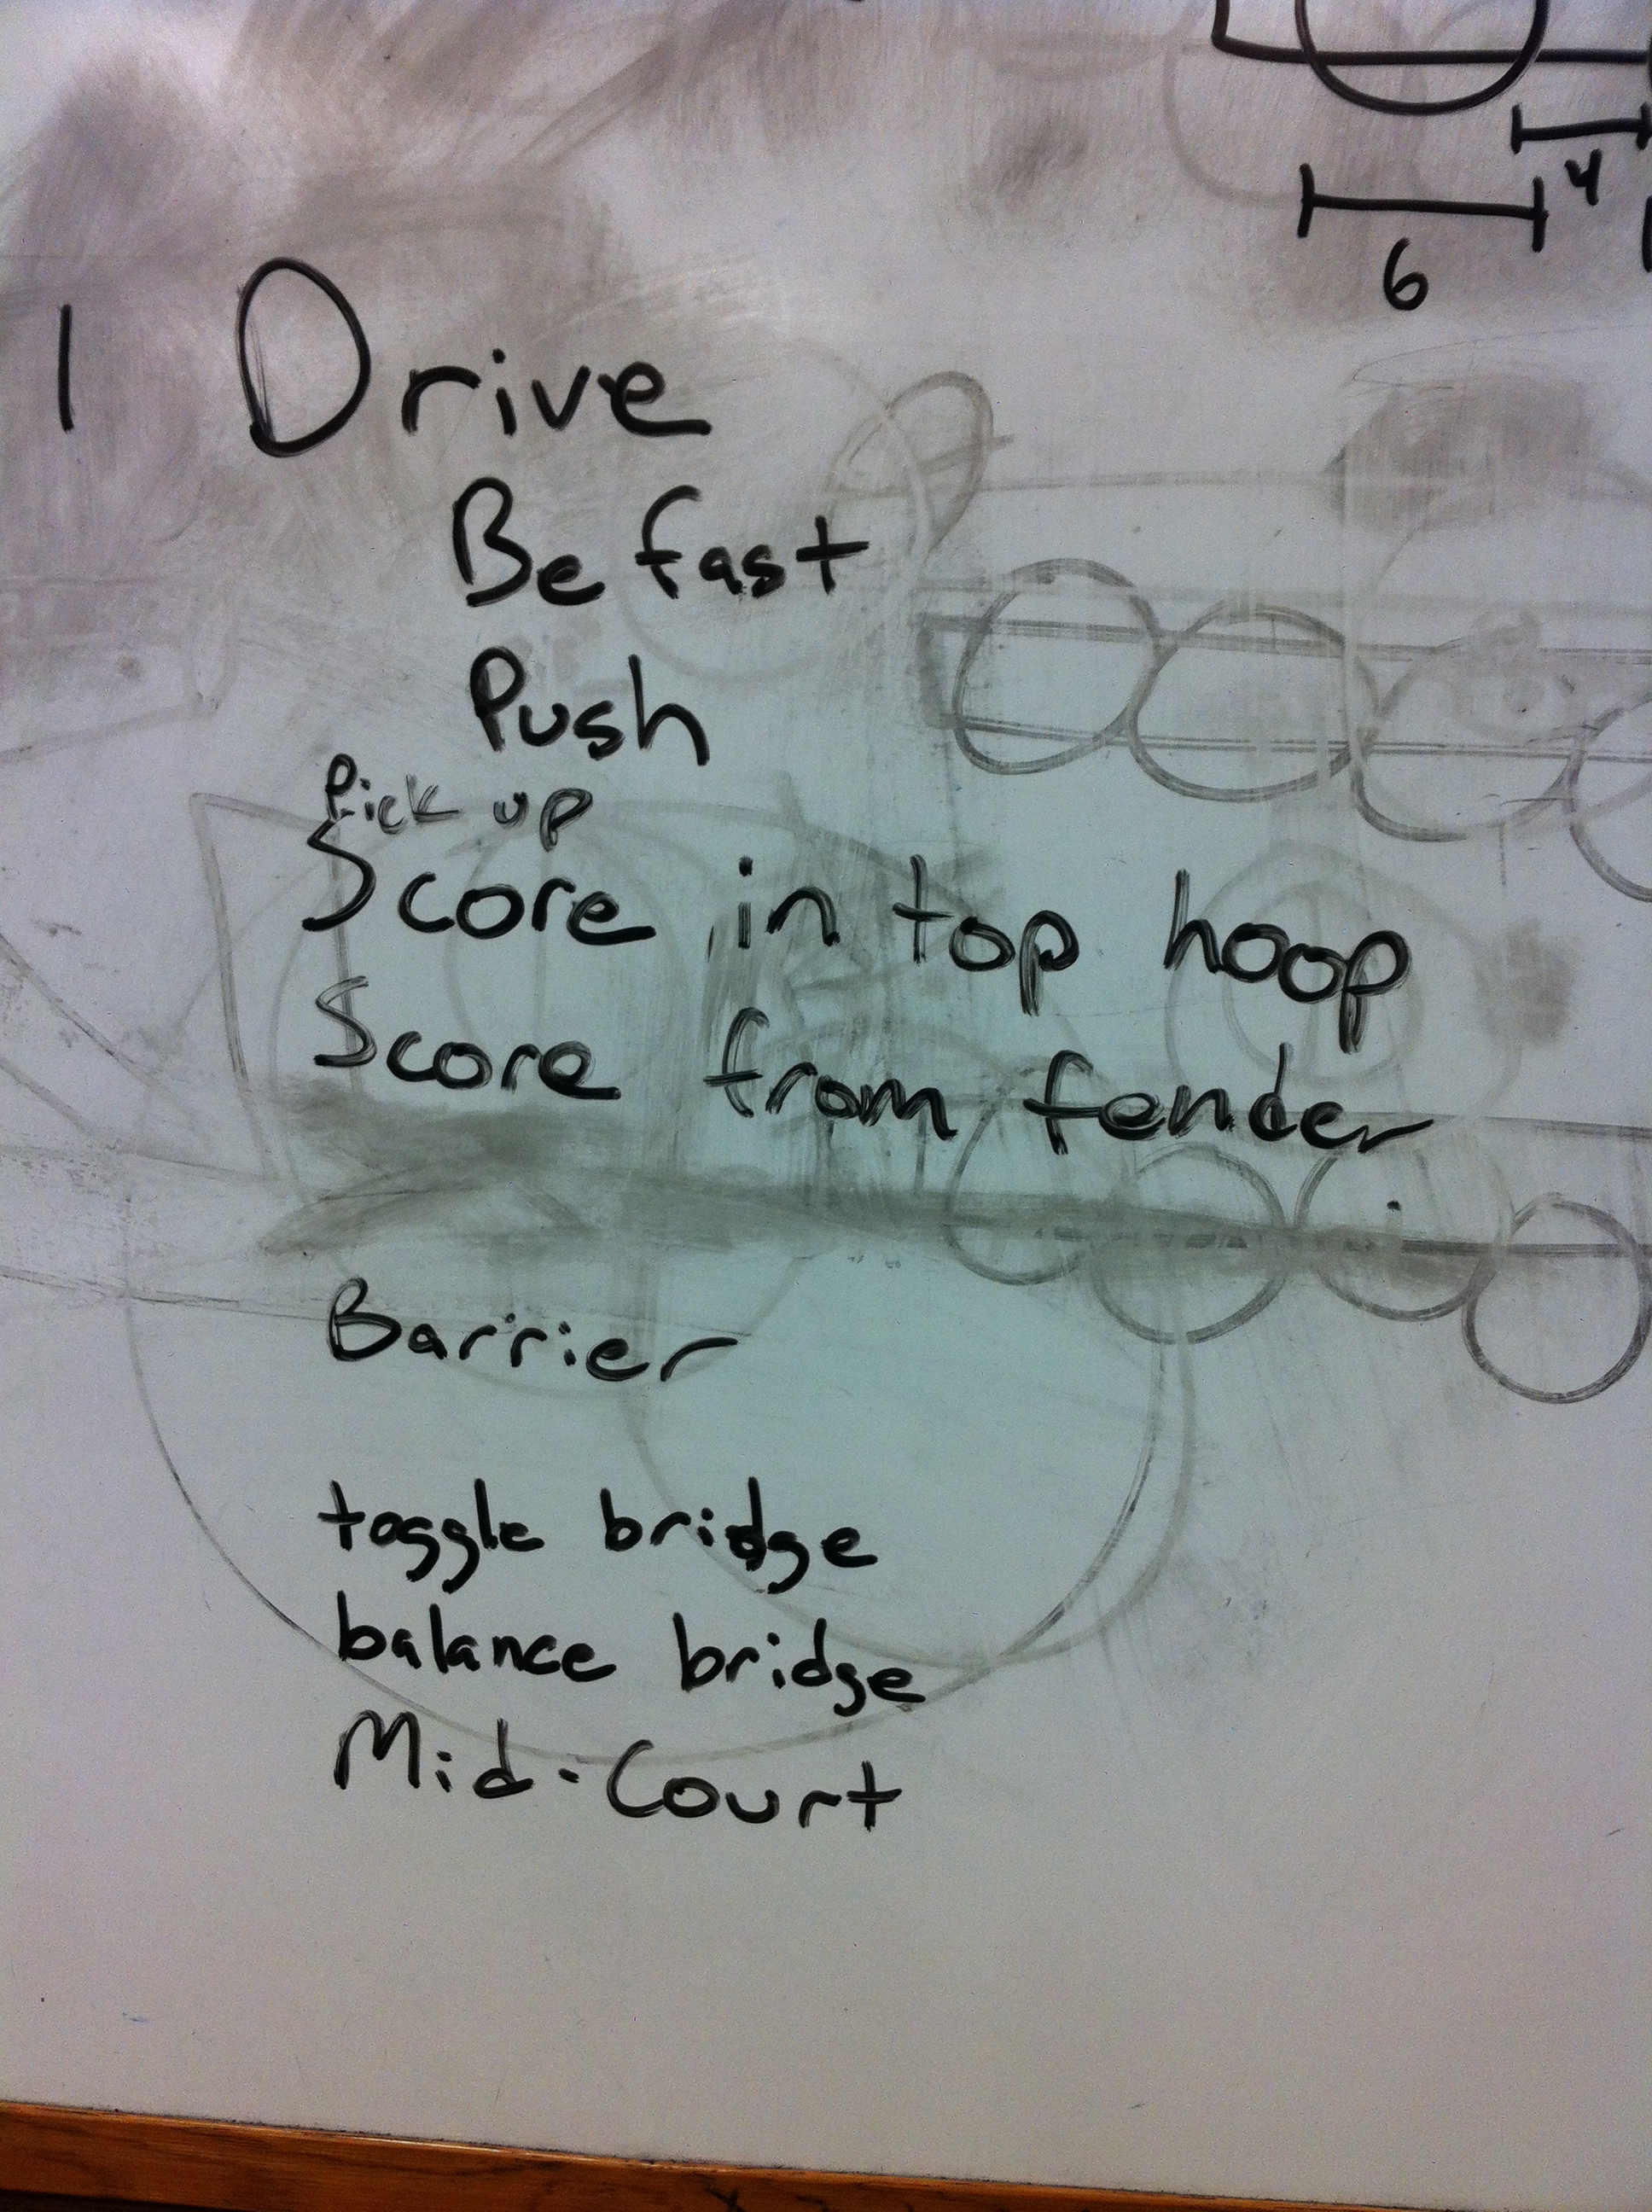 4
6
1 Drive
Be fast
Push
Pick up
Score in top hoop
Score from fender
Barrier
toggle bridge
balance bridge
Mid-Court